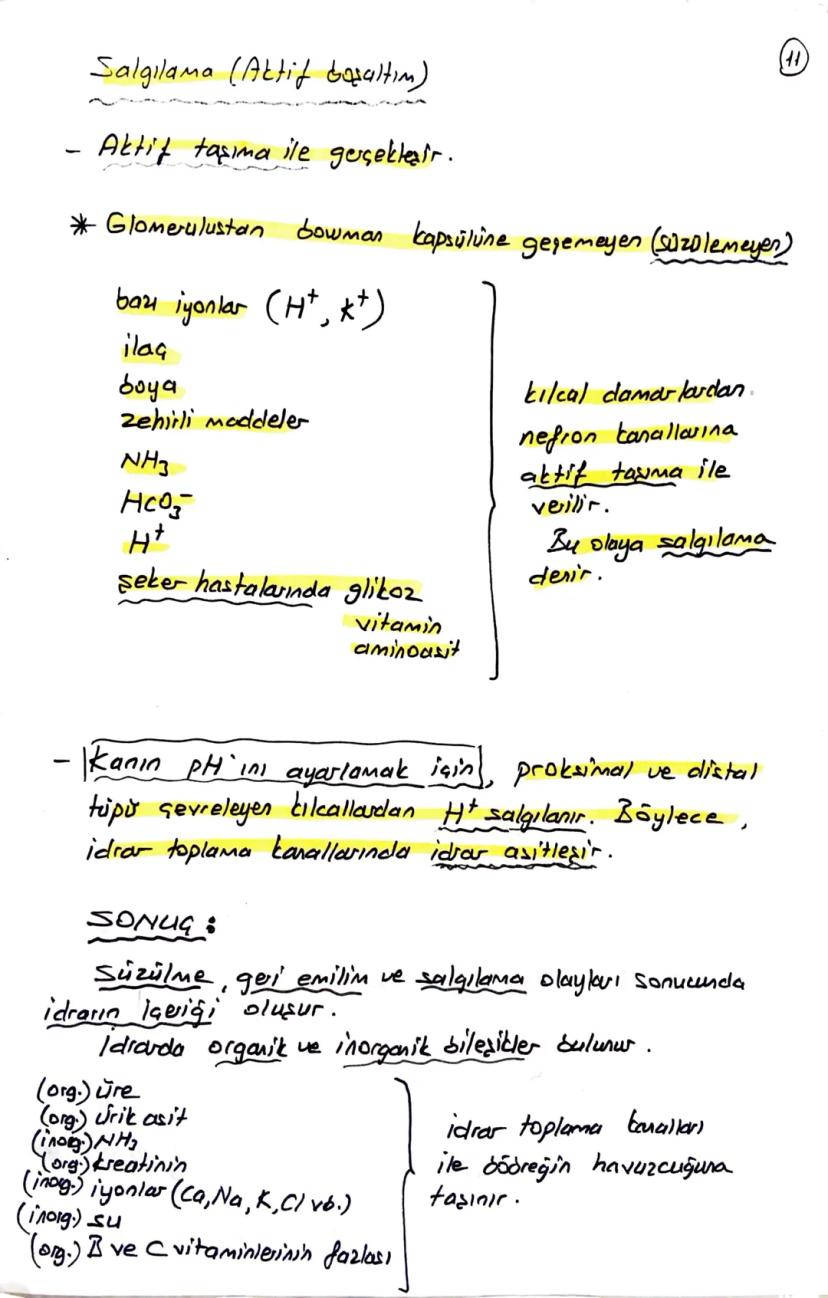 11
Salgılama (Aktif boşaltım)
- Aktif taşıma ile gerçekleşir.
* Glomerulustan bowman kapsülüne geçemeyen (süzülemeyen)
bazı iyonlar (H+, K+)
ilaç
boya
zehirli maddeler
NH3
HCO3-
H+
şeker hastalarında glikoz
vitamin
aminoasit
kılcal damarlardan
nefron kanallarına
aktif taşıma ile
verilir.
Bu olaya salgılama
denir.
- Kanın pH'ını ayarlamak için, proksimal ve distal
tüpü çevreleyen kılcallardan H+ salgılanır. Böylece,
idrar toplama kanallarında idrar asitleşir.
SONUÇ:
Süzülme, geri emilim ve salgılama olayları sonucunda
idrarın içeriği oluşur.
İdrarda organik ve inorganik bileşikler bulunur.
(org.) üre
(org.) ürik asit
(inorg.) NH3
(org.) kreatinin
(inorg.) iyonlar (Ca, Na, K, Cl vb.)
(inorg.) su
(org.) B ve C vitaminlerinin fazlası
idrar toplama kanalları
ile böbreğin havuzcuğuna
taşınır.